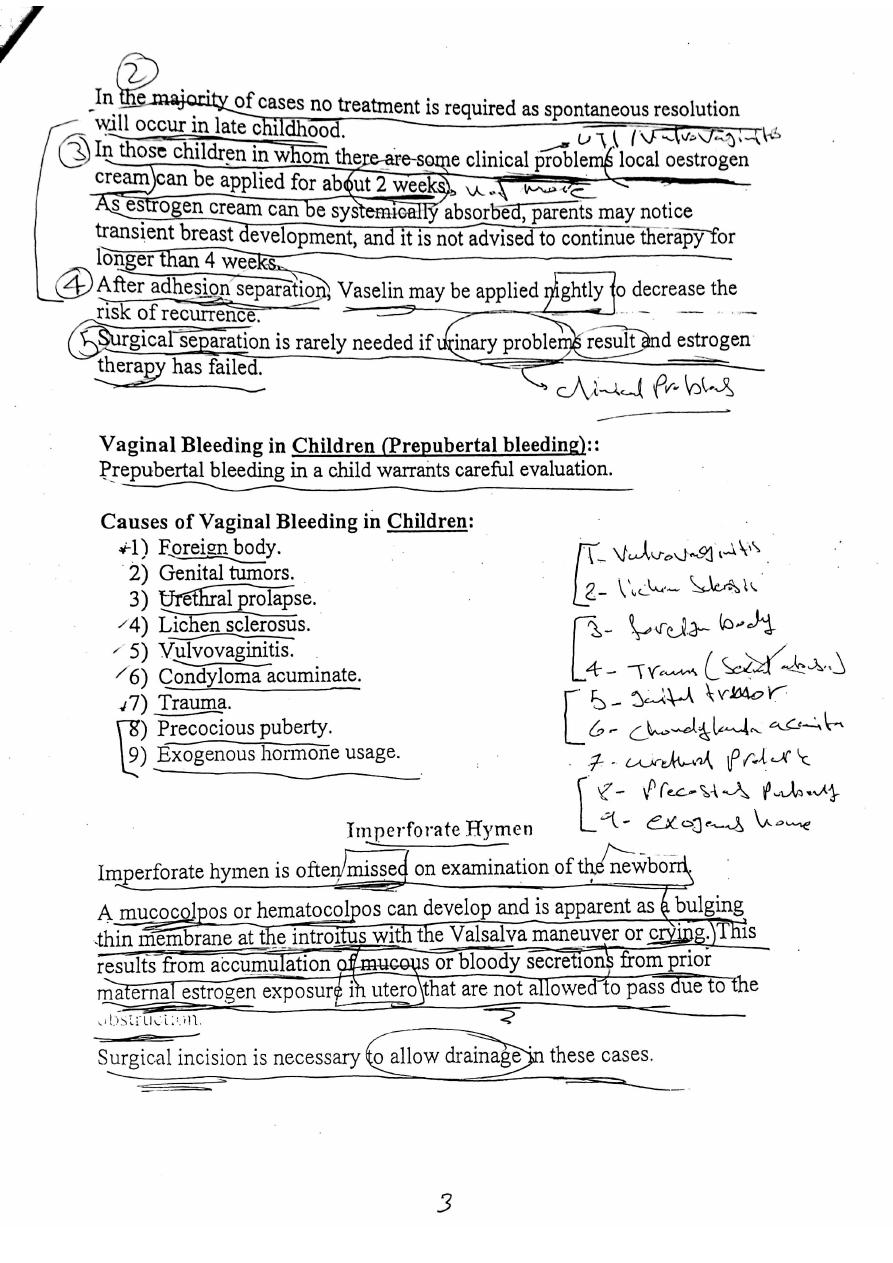 2
In the majority of cases no treatment is required as spontaneous resolution
will occur in late childhood.
UTI / Vulvovaginitis
3 In those children in whom there are some clinical problems local oestrogen
cream can be applied for about 2 weeks.
not more
As estrogen cream can be systemically absorbed, parents may notice
transient breast development, and it is not advised to continue therapy for
longer than 4 weeks.
4 After adhesion separation, Vaselin may be applied nightly to decrease the
risk of recurrence.
5 Surgical separation is rarely needed if urinary problems result and estrogen
therapy has failed.
clinical Problems
Vaginal Bleeding in Children (Prepubertal bleeding)::
Prepubertal bleeding in a child warrants careful evaluation.
Causes of Vaginal Bleeding in Children:
*1) Foreign body.
2) Genital tumors.
3) Urethral prolapse.
4) Lichen sclerosus.
5) Vulvovaginitis.
6) Condyloma acuminate.
7) Trauma.
8) Precocious puberty.
9) Exogenous hormone usage.
1- Vulvovaginitis
2- lichen Sclerosis
3- foreign body
4- Trauma (Sexual abuse)
5-
6-
7- urethral
8- Puberty
9- exogenous
Imperforate Hymen
Imperforate hymen is often missed on examination of the newborn.
A mucocolpos or hematocolpos can develop and is apparent as a bulging
thin membrane at the introitus with the Valsalva maneuver or crying. This
results from accumulation of mucous or bloody secretions from prior
maternal estrogen exposure in utero that are not allowed to pass due to the
obstruction.
Surgical incision is necessary to allow drainage in these cases.
3